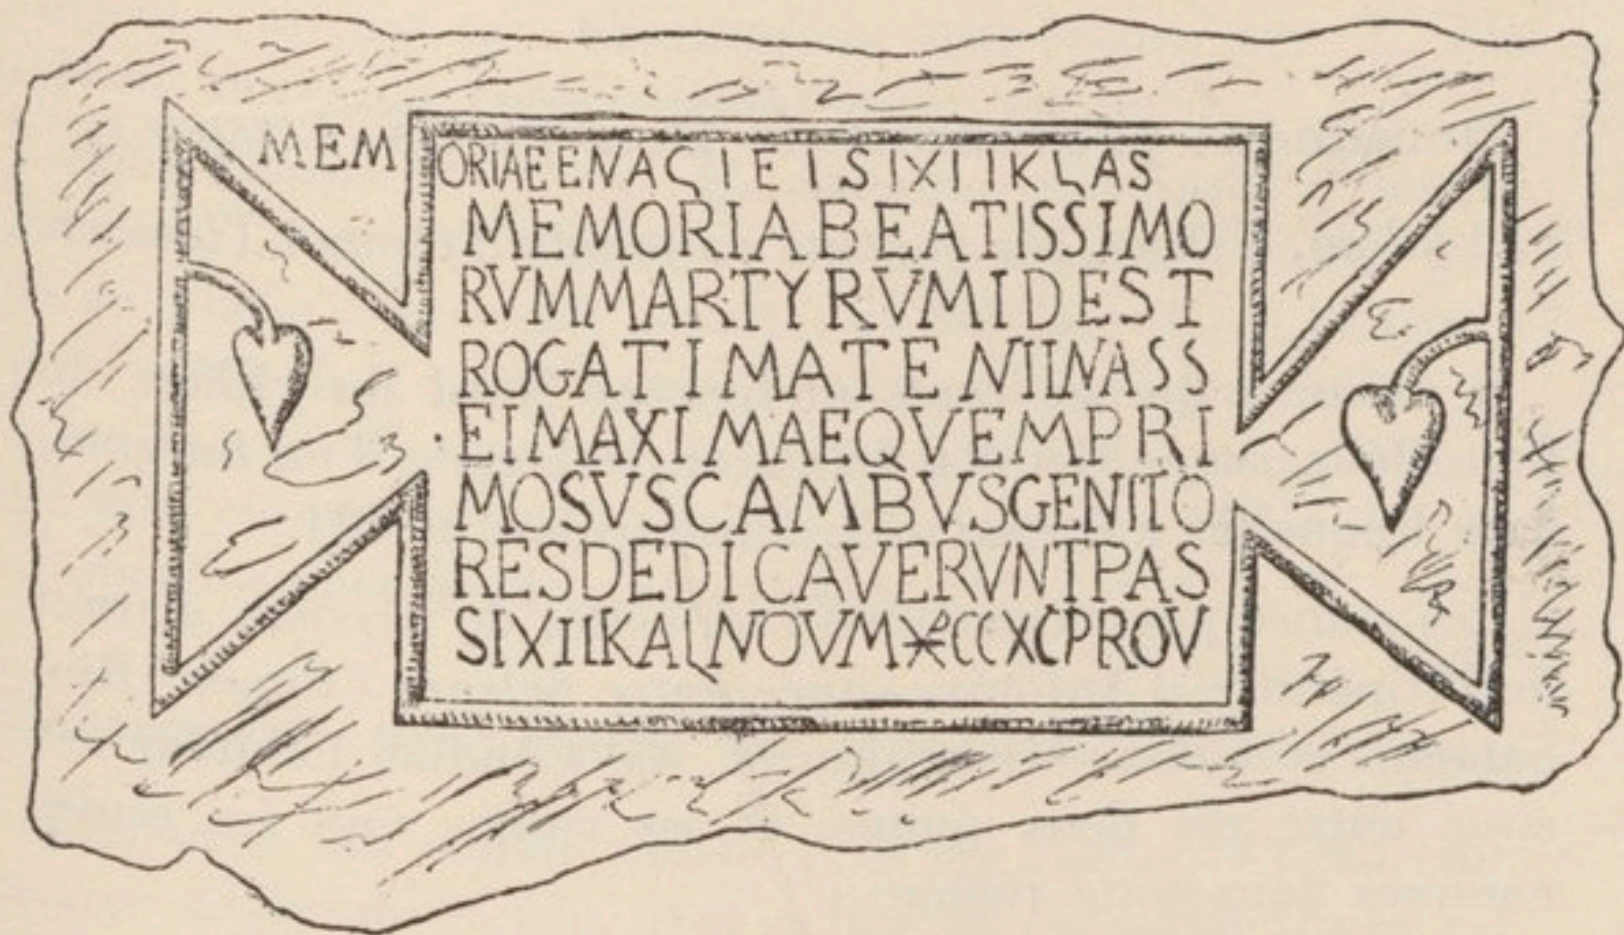 MEMORIAEENAGIEISIXIIKLAS
MEMORIABEATISSIMO
RVMMARTYRVMIDEST
ROGATIMATENIINASS
EIMAXIMAEQVEMPRI
MOSVSCAMBVSGENITO
RESDEDICAVERVNTPAS
SIXIIKALNOVM⳩CCXCPROV